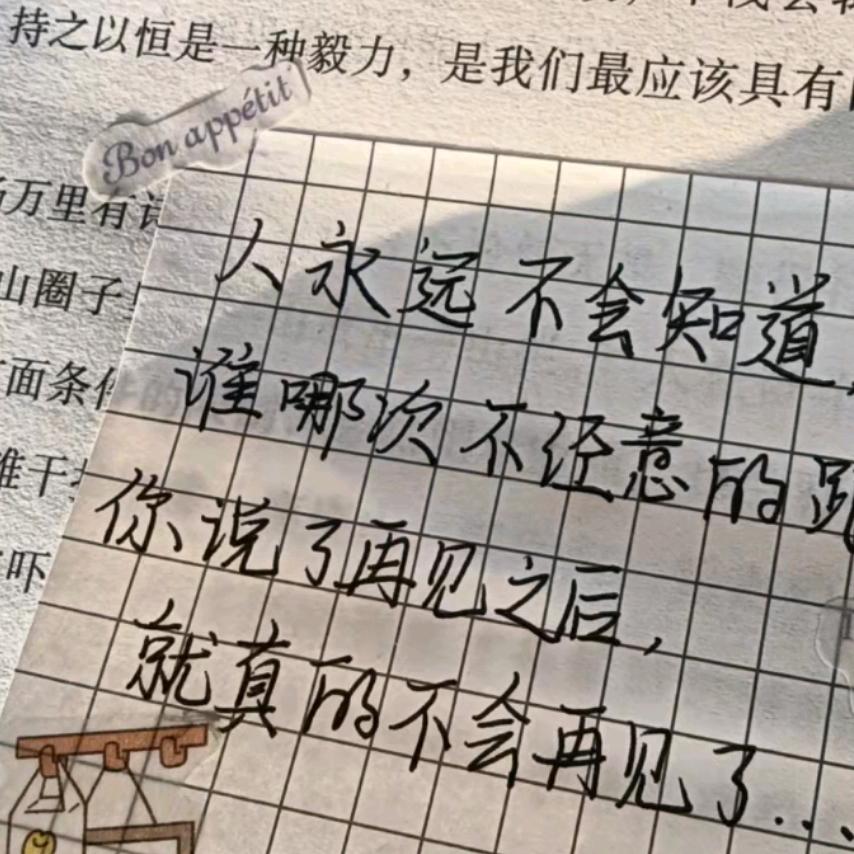 持之以恒是一种毅力，是我们最应该具有
Bon appétit
万里有
山圈子
面条件
人永远不会知道，
谁哪次不经意的跟
你说了再见之后，
就真的不会再见了...
干
吓